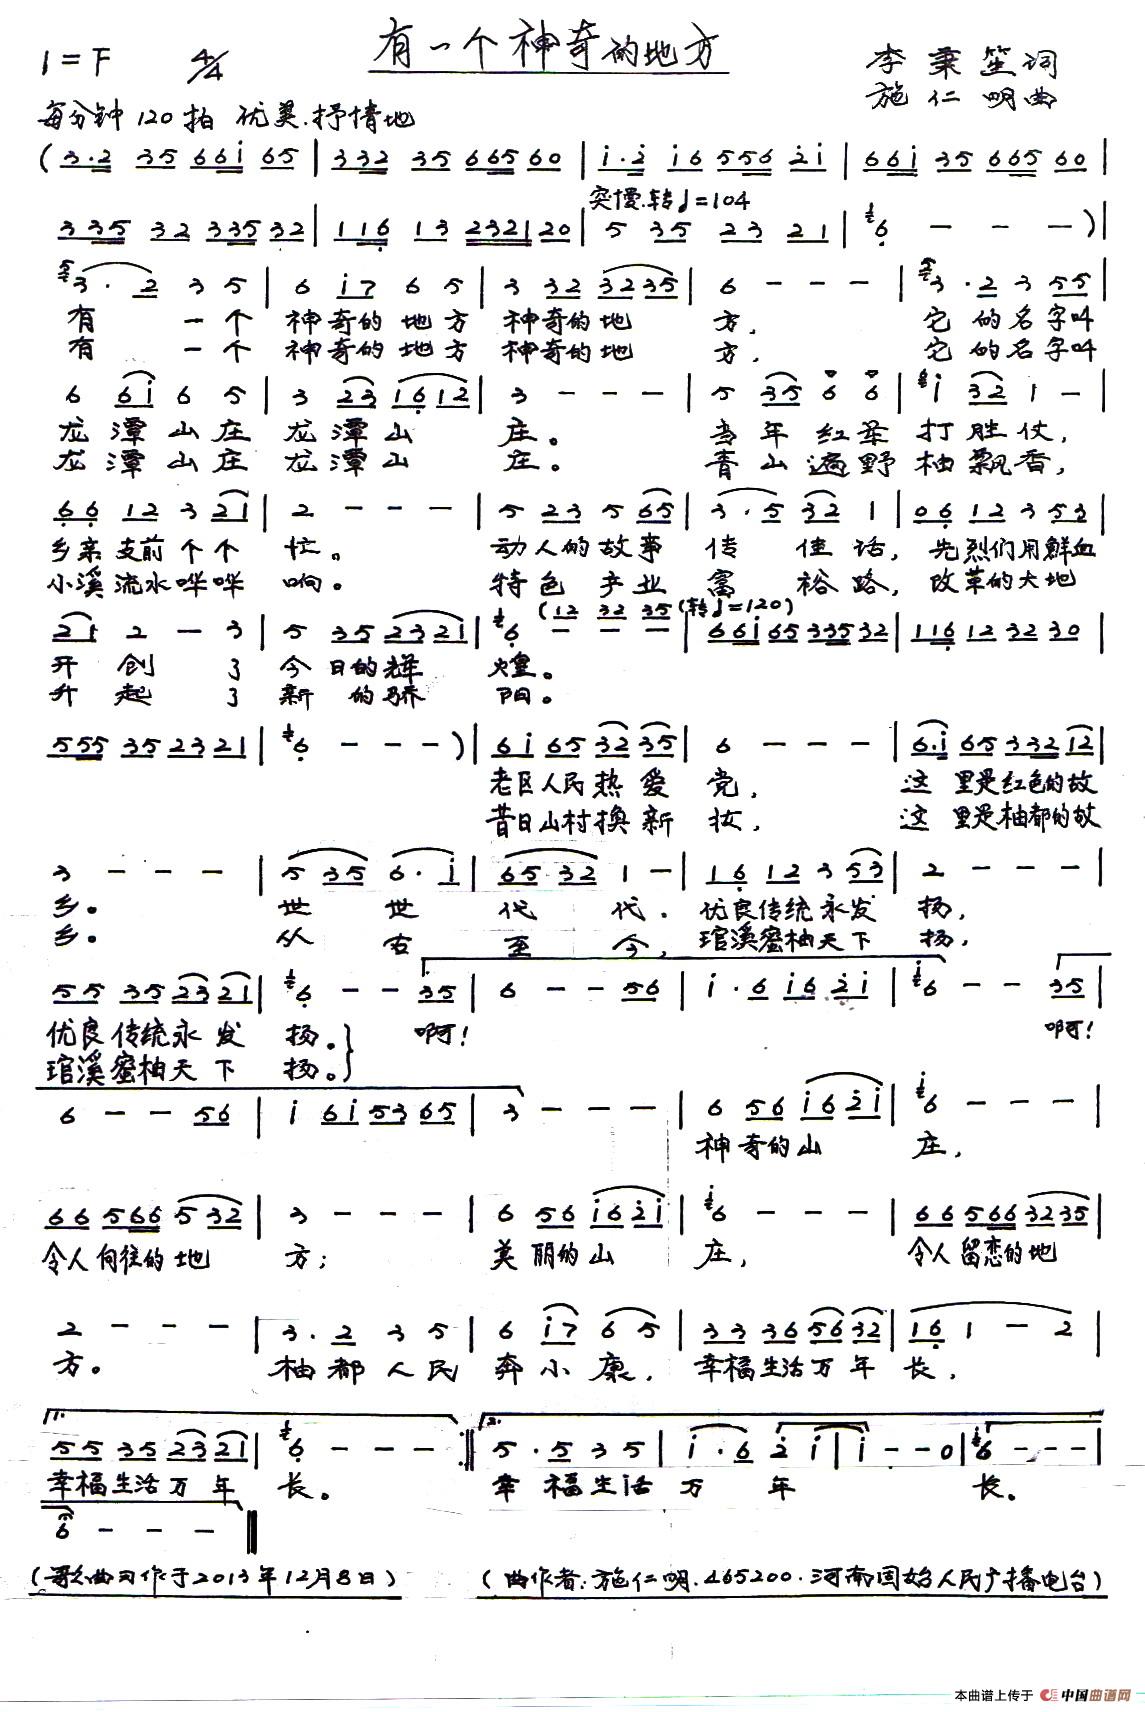 有一个神奇的地方
1=F 4/4 李秉笙词
施仁明曲
每分钟120拍 优美.抒情地
(3·2 35 66i 65 | 332 35 665 60 | i·2 i6 556 2i | 66i 35 665 60 |
突慢.转♩=104
335 32 335 32 | 116 13 2321 20 | 5 35 23 21 | 6 - - - ) |
3·2 3 5 | 6 i7 6 5 | 3 32 3235 | 6 - - - | 3·2 3 55 |
有 一个 神奇的地方 神奇的地 方, 它的名字叫
有 一个 神奇的地方 神奇的地 方, 它的名字叫
6 6i 6 5 | 3 23 1612 | 3 - - - | 5 35 6 6 | i 32 1 - |
龙潭山庄 龙潭山 庄。 当年红军 打胜仗,
龙潭山庄 龙潭山 庄。 青山遍野 柚飘香,
66 12 3 21 | 2 - - - | 5 23 5 65 | 3·5 32 1 | 06 12 35 53 |
乡亲支前个个 忙。 动人的故事 传佳话, 先烈们用鲜血
小溪流水哗哗 响。 特色产业富 裕路, 改革的大地
(12 32 35 (转♩=120)
21 2 - 3 | 5 35 2321 | 6 - - - | 66i 65 335 32 | 116 12 32 30 |
开创了 今日的辉 煌。
升起了 新的骄 阳。
555 35 23 21 | 6 - - - ) | 6i 65 32 35 | 6 - - - | 6·i 65 332 12 |
老区人民热爱 党, 这里是红色的故
昔日山村换新 妆, 这里是柚都的故
3 - - - | 5 35 6·i | 65 32 1 - | 16 12 3 53 | 2 - - - |
乡。 世世 代代. 优良传统永发 扬,
乡。 从古 至今, 琯溪蜜柚天下 扬,
55 35 23 21 | 6 - - 35 | 6 - - 56 | i·6 i6 2i | 6 - - 35 |
优良传统永发 扬。} 啊! 啊!
琯溪蜜柚天下 扬。}
6 - - 56 | i 6i 53 65 | 3 - - - | 6 56 i6 2i | 6 - - - |
神奇的山 庄,
66 566 5 32 | 3 - - - | 6 56 i6 2i | 6 - - - | 66 566 32 35 |
令人向往的地 方; 美丽的山 庄, 令人留恋的地
2 - - - | 3·2 3 5 | 6 i7 6 5 | 33 36 56 32 | 16 1 - 2 |
方。 柚都人民 奔小康, 幸福生活万年 长,
1. 2.
55 35 23 21 | 6 - - - :‖ 5·5 3 5 | i·6 2 i | i - - 0 | 6 - - - |
幸福生活万年 长。 幸福生活 万年 长。
6 - - - ‖
(歌曲习作于2013年12月8日) (曲作者:施仁明.465200.河南固始人民广播电台)
本曲谱上传于 中国曲谱网